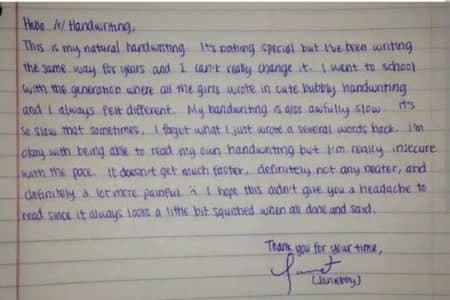 Hello /r/ Handwriting,
This is my natural handwriting. It's nothing special but I've been writing
the same way for years and I can't really change it. I went to school
with the generation where all the girls wrote in cute bubbly handwriting
and I always felt different. My handwriting is also awfully slow. It's
so slow that sometimes, I forget what I just wrote a several words back. I'm
okay with being able to read my own handwriting but I'm really insecure
with the pace. It doesn't get much faster, definitely not any neater, and
definitely a lot more painful. I hope this didn't give you a headache to
read since it always looks a little bit squished when all done and said.
Thank you for your time,